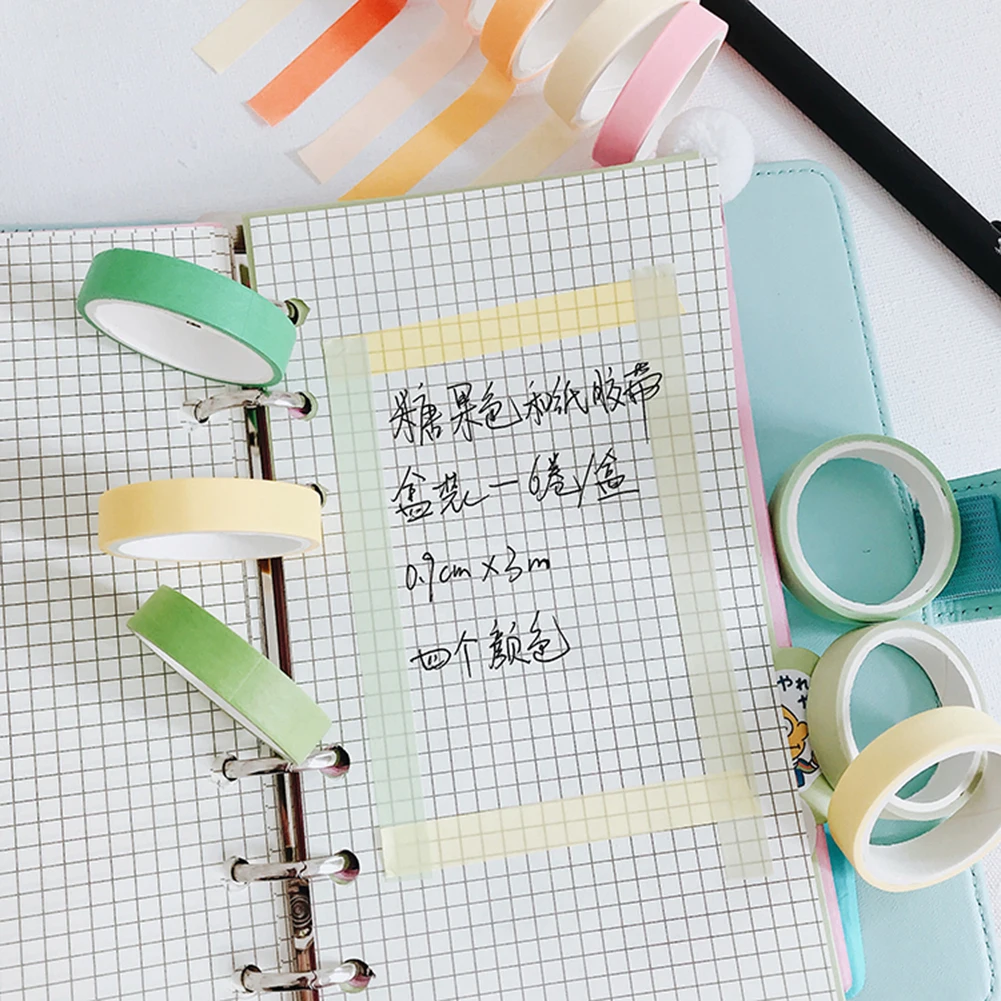 糖果色和纸胶带
盒装一6卷/盒
0.9cm×3m
四个颜色
やれ
や